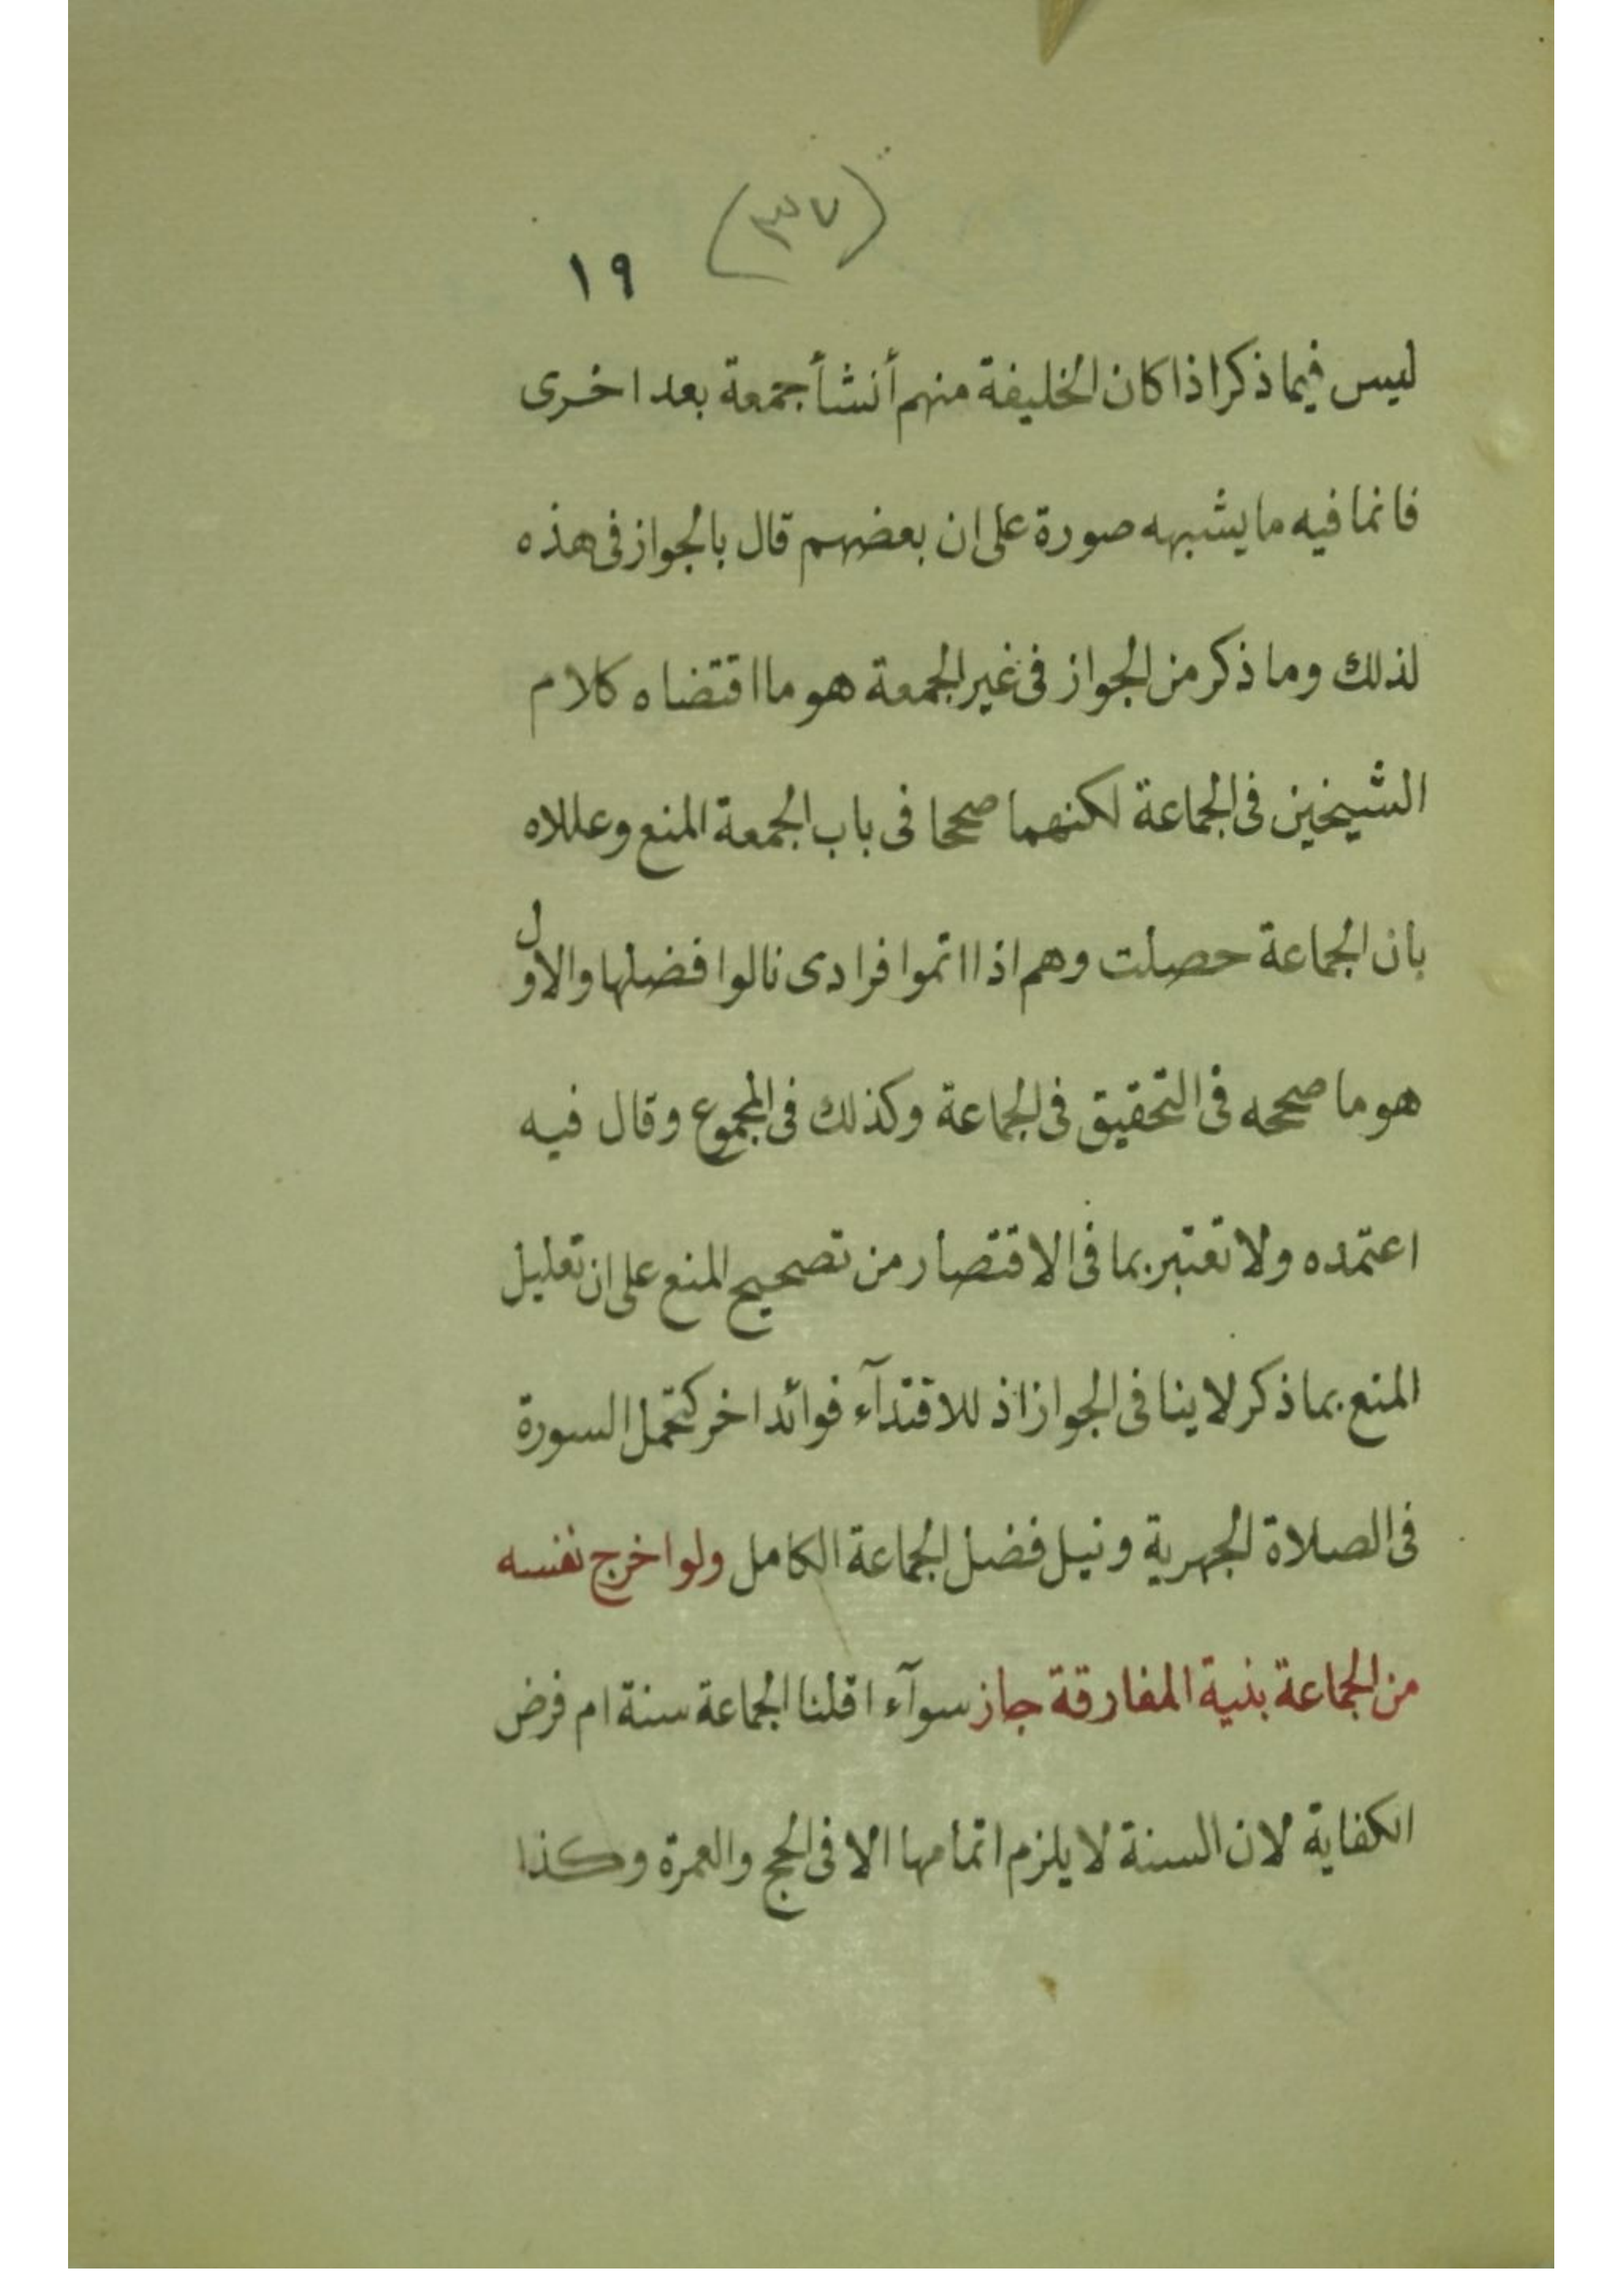 (٣٧)
١٩
ليس فيما ذكر اذا كان الخليفة منهم أنشأ جمعة بعد اخرى
فانما فيه ما يشبهه صورة على ان بعضهم قال بالجواز فى هذه
لذلك وما ذكر من الجواز فى غير الجمعة هو ما اقتضاه كلام
الشيخين فى الجماعة لكنهما صححا فى باب الجمعة المنع وعللاه
بان الجماعة حصلت وهم اذا اتموا فرادى نالوا فضلها والاول
هو ما صححه فى التحقيق فى الجماعة وكذلك فى المجموع وقال فيه
اعتمده ولا تعتبر بما فى الاقتصار من تصحيح المنع على ان تعليل
المنع بما ذكر لا ينافى الجواز اذ للاقتدآء فوائد اخر كتحمل السورة
فى الصلاة الجهرية ونيل فضل الجماعة الكامل ولو اخرج نفسه
من الجماعة بنية المفارقة جاز سوآء اقلنا الجماعة سنة ام فرض
الكفاية لان السنة لا يلزم اتمامها الا فى الحج والعمرة وكذا